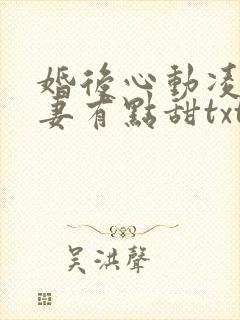 婚後心動凌
妻有點甜txt
吴洪聲